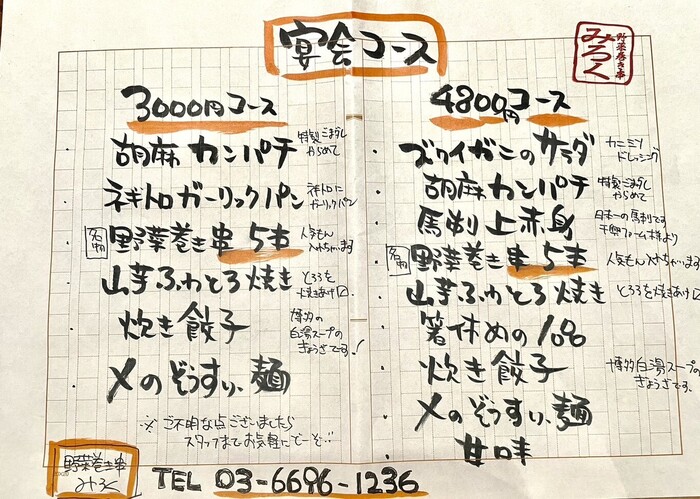 宴会コース
野菜巻き串
みろく
3000円コース
胡麻カンパチ
特製ごまダレ
からめて
ネギトロガーリックパン
ネギトロに
ガーリックパン
名物
野菜巻き串 5本
人気もん
入れちゃいます
山芋ふわとろ焼き
とろろを
焼きあげ
炊き餃子
博多の
白湯スープの
ぎょうざです!
〆のぞうすい、麺
※ご不明な点ございましたら
スタッフまでお気軽にでーぞ
野菜巻き串
みろく
4800円コース
ズワイガニのサラダ
カニミソ
ドレッシング
胡麻カンパチ
特製ごまダレ
からめて
馬刺上赤身
日本一の馬刺です
千興ファーム様より
名物
野菜巻き串 5本
人気もん入れちゃいます
山芋ふわとろ焼き
とろろを焼きあげ
箸休めの1品
炊き餃子
博多白湯スープの
ぎょうざです。
〆のぞうすい、麺
甘味
TEL 03-6696-1236